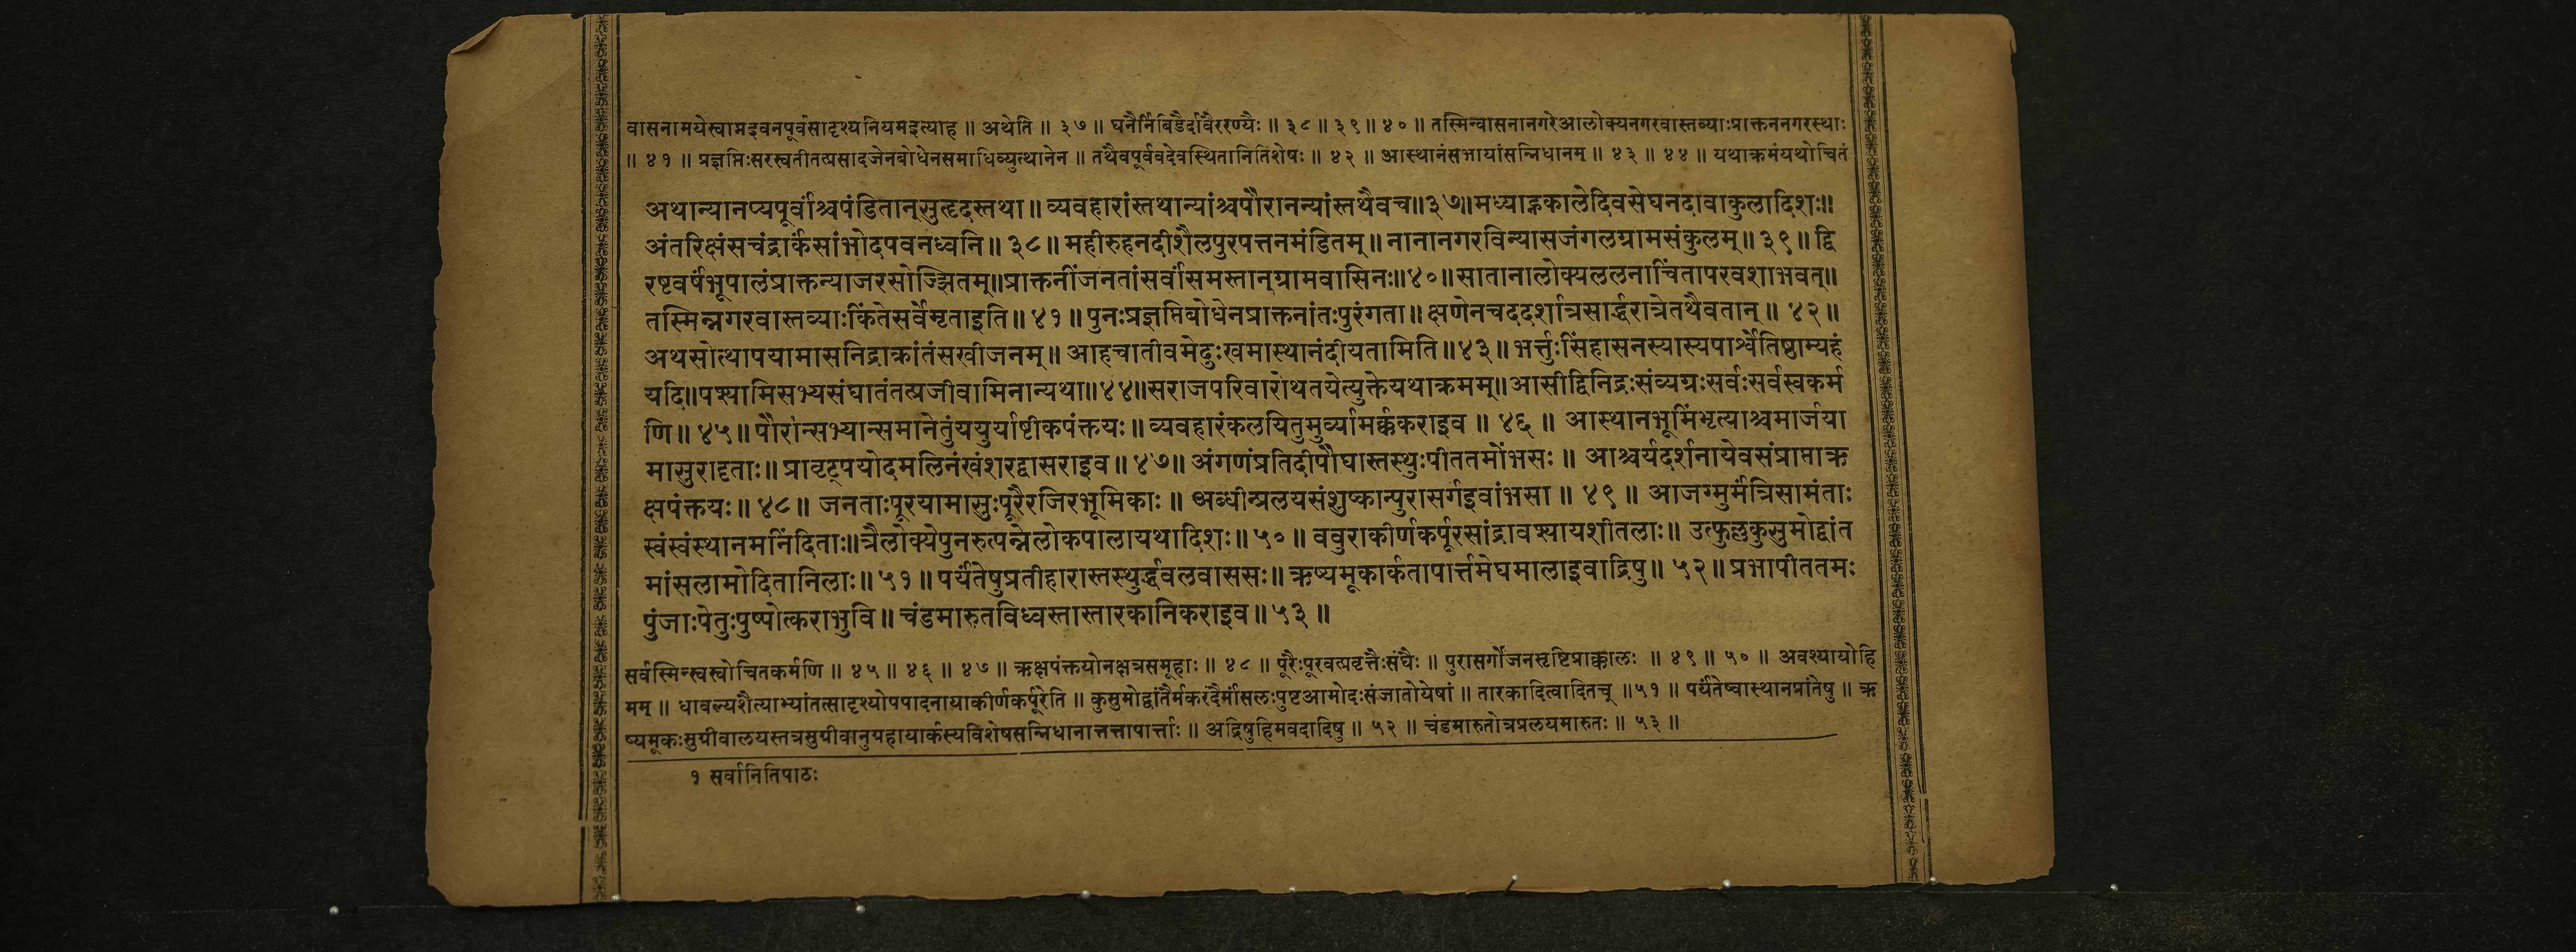 वासनामयेस्वाप्नइवनपूर्वसादृश्यनियमइत्याह ॥ अथेति ॥ ३७ ॥ घनैर्निबिडैर्दावैररण्यैः ॥ ३८ ॥ ३९ ॥ ४० ॥ तस्मिन्वासनानगरेआलोक्यनगरवास्तव्याःप्राक्तननगरस्थाः
॥ ४१ ॥ प्रज्ञप्तिःसरस्वतीतत्प्रसादजेनबोधेनसमाधिव्युत्थानेन ॥ तथैवपूर्ववदेवस्थितानितिशेषः ॥ ४२ ॥ आस्थानंसभायांसन्निधानम् ॥ ४३ ॥ ४४ ॥ यथाक्रमंयथोचितं
अथान्यानप्यपूर्वांश्चपंडितान्सुहृदस्तथा ॥ व्यवहारांस्तथान्यांश्चपौरानन्यांस्तथैवच॥३७॥मध्याह्नकालेदिवसेघनदावाकुलादिशः॥
अंतरिक्षंसचंद्रार्कसांभोदपवनध्वनि ॥ ३८ ॥ महीरुहनदीशैलपुरपत्तनमंडितम् ॥ नानानगरविन्यासजंगलग्रामसंकुलम् ॥ ३९ ॥ द्वि
रष्टवर्षंभूपालंप्राक्तन्याजरसोज्झितम्॥प्राक्तनींजनतांसर्वांसमस्तान्ग्रामवासिनः॥४०॥सातानालोक्यललनाचिंतापरवशाभवत्॥
तस्मिन्नगरवास्तव्याःकिंतेसर्वेमृताइति ॥ ४१ ॥ पुनःप्रज्ञप्तिबोधेनप्राक्तनांतःपुरंगता ॥ क्षणेनचददर्शात्रसार्द्धरात्रेतथैवतान् ॥ ४२ ॥
अथसोत्थापयामासनिद्राक्रांतंसखीजनम् ॥ आहचातीवमेदुःखमास्थानंदीयतामिति ॥४३॥ भर्त्तुःसिंहासनस्यास्यपार्श्वेतिष्ठाम्यहं
यदि॥पश्यामिसभ्यसंघातंतत्प्रजीवामिनान्यथा॥४४॥सराजपरिवारोथतयेत्युक्तेयथाक्रमम्॥आसीद्विनिद्रःसंव्यग्रःसर्वःसर्वस्वकर्म
णि ॥ ४५ ॥ पौरान्सभ्यान्समानेतुंययुर्याष्टीकपंक्तयः ॥ व्यवहारंकलयितुमुर्व्यामर्क्ककराइव ॥ ४६ ॥ आस्थानभूमिंभृत्याश्चमार्जया
मासुरादृताः ॥ प्रावृट्पयोदमलिनंखंशरद्वासराइव ॥ ४७ ॥ अंगणंप्रतिदीपौघास्तस्थुःपीततमोंभसः ॥ आश्चर्यदर्शनायेवसंप्राप्ताऋ
क्षपंक्तयः ॥ ४८ ॥ जनताःपूरयामासुःपूरैरजिरभूमिकाः ॥ अब्धीन्प्रलयसंशुष्कान्पुरासर्गइवांभसा ॥ ४९ ॥ आजग्मुर्मंत्रिसामंताः
स्वंस्वंस्थानमनिंदिताः॥त्रैलोक्येपुनरुत्पन्नेलोकपालायथादिशः ॥ ५० ॥ ववुराकीर्णकर्पूरसांद्रावश्यायशीतलाः ॥ उत्फुल्लकुसुमोद्वांत
मांसलामोदितानिलाः ॥ ५१ ॥ पर्यंतेषुप्रतीहारास्तस्थुर्द्धवलवाससः ॥ ऋष्यमूकार्कतापार्त्तमेघमालाइवाद्रिषु ॥ ५२ ॥ प्रभापीततमः
पुंजाःपेतुःपुष्पोत्कराभुवि ॥ चंडमारुतविध्वस्तास्तारकानिकराइव ॥ ५३ ॥
सर्वस्मिन्स्वस्वोचितकर्मणि ॥ ४५ ॥ ४६ ॥ ४७ ॥ ऋक्षपंक्तयोनक्षत्रसमूहाः ॥ ४८ ॥ पूरैःपूरवत्प्रवृत्तैःसंघैः ॥ पुरासर्गोजनसृष्टिप्राक्कालः ॥ ४९ ॥ ५० ॥ अवश्यायोहि
मम् ॥ धावल्यशैत्याभ्यांतत्सादृश्योपपादनायाकीर्णकर्पूरेति ॥ कुसुमोद्वांतैर्मकरंदैर्मांसलःपुष्टआमोदःसंजातोयेषां ॥ तारकादित्वादितच् ॥५१ ॥ पर्यंतेष्वास्थानप्रांतेषु ॥ ऋ
ष्यमूकःसुग्रीवालयस्तत्रसुग्रीवानुग्रहायार्कस्यविशेषसन्निधानात्तत्तापार्त्ताः ॥ अद्रिषुहिमवदादिषु ॥ ५२ ॥ चंडमारुतोत्रप्रलयमारुतः ॥ ५३ ॥
१ सर्वानितिपाठः